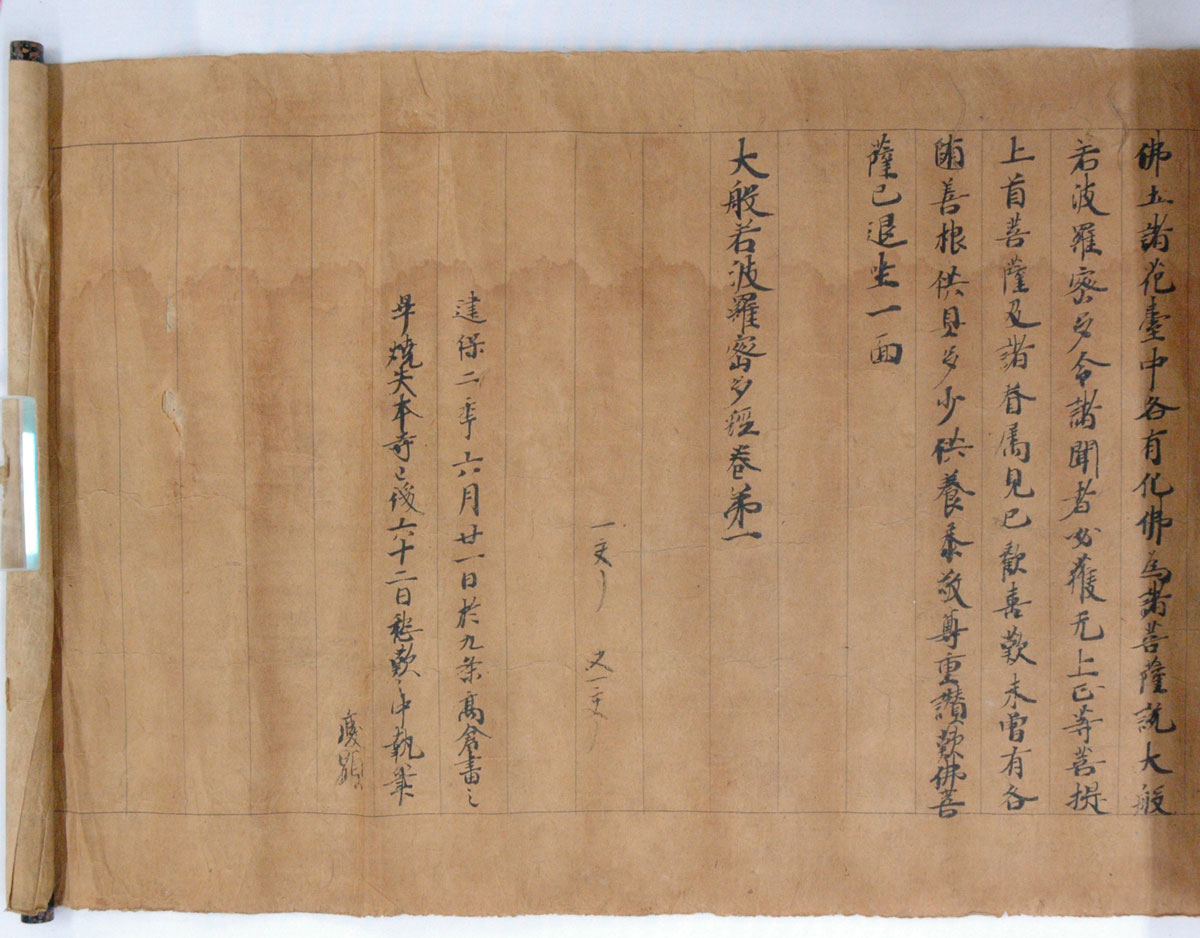 佛土諸花臺中各有化佛為諸菩薩說大般
若波羅蜜多令諸聞者必獲无上正等菩提
上首菩薩及諸眷属見已歡喜歎未曾有各
善根供具多少供養恭敬尊重讃歎佛菩
薩已退坐一面
大般若波羅蜜多經卷第一
一交了
建保二年六月廿一日於九条高倉書之
畢燒失本寺已後六十二日愁歎之中執筆
慶